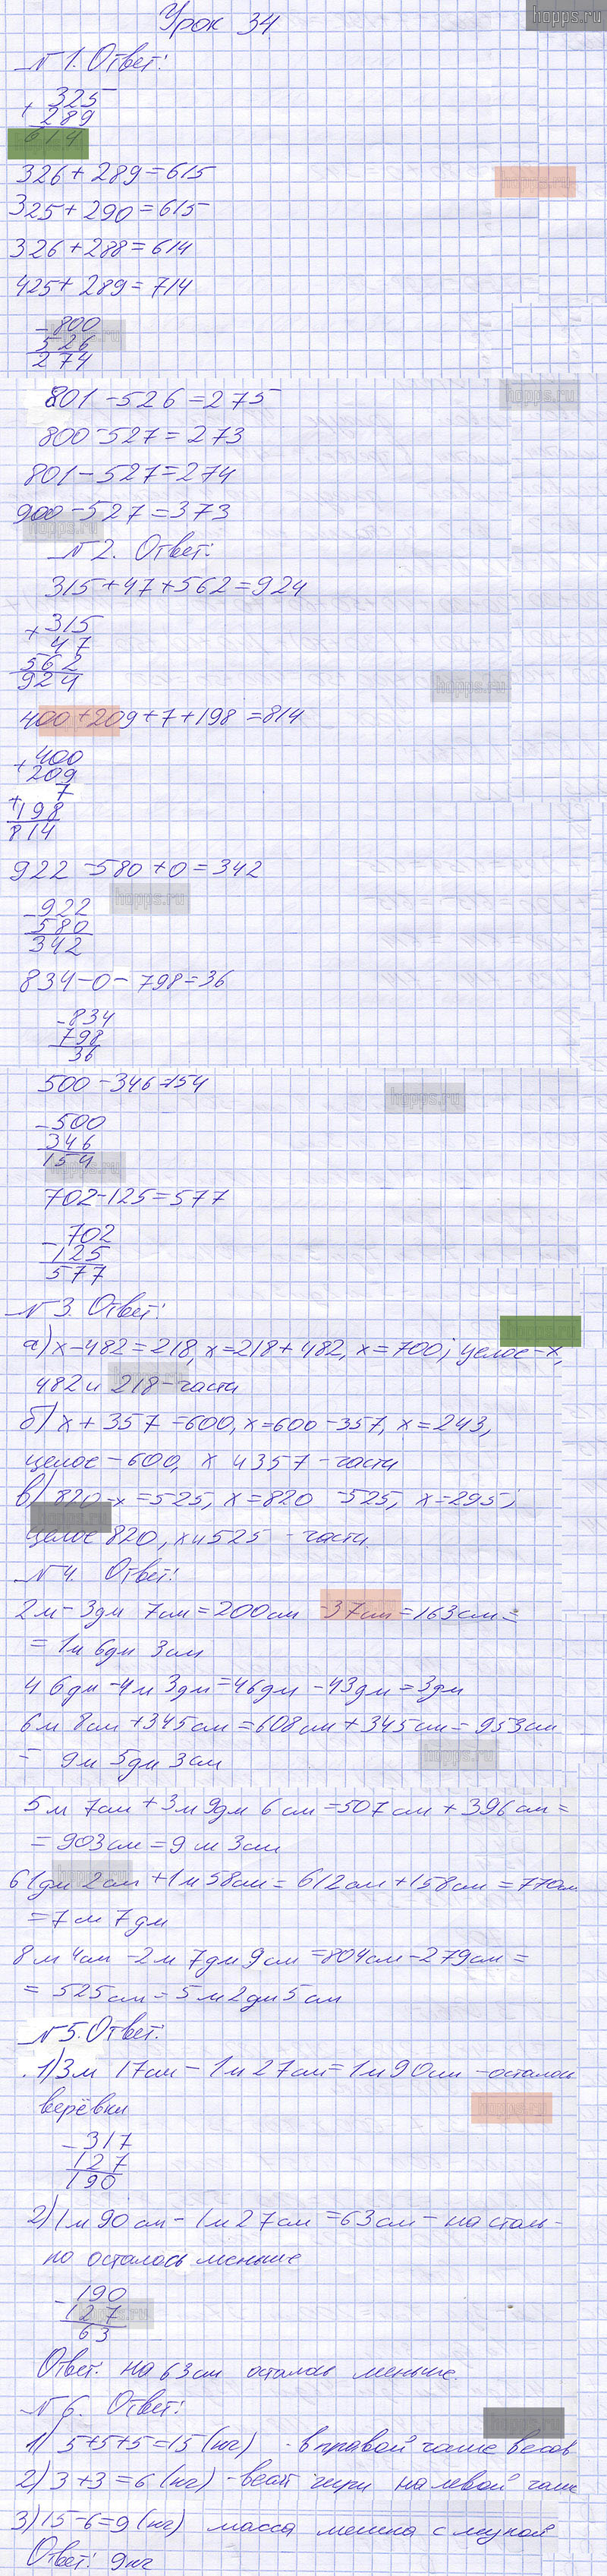 hopps.ru
Урок 34
№ 1. Ответ:
+ 325
289
614
326 + 289 = 615
325 + 290 = 615
326 + 288 = 614
425 + 289 = 714
- 800
526
274
801 - 526 = 275
hopps.ru
800 - 527 = 273
801 - 527 = 274
900 - 527 = 373
№ 2. Ответ:
315 + 47 + 562 = 924
+ 315
47
562
924
hopps.ru
400 + 209 + 7 + 198 = 814
+ 400
209
+ 7
198
814
922 - 580 + 0 = 342
hopps.ru
- 922
580
342
834 - 0 - 798 = 36
- 834
798
36
500 - 346 = 154
hopps.ru
- 500
346
154
702 - 125 = 577
- 702
125
577
№ 3. Ответ:
а) х - 482 = 218, х = 218 + 482, х = 700; целое - х,
482 и 218 - части
б) х + 357 = 600, х = 600 - 357, х = 243,
целое - 600, х и 357 - части
в) 820 - х = 525, х = 820 - 525, х = 295;
целое 820, х и 525 - части.
№ 4. Ответ:
2 м - 3 дм 7 см = 200 см - 37 см = 163 см =
= 1 м 6 дм 3 см
46 дм - 4 м 3 дм = 46 дм - 43 дм = 3 дм
6 м 8 см + 345 см = 608 см + 345 см = 953 см
= 9 м 5 дм 3 см
hopps.ru
5 м 7 см + 3 м 9 дм 6 см = 507 см + 396 см =
= 903 см = 9 м 3 см
61 дм 2 см + 1 м 58 см = 612 см + 158 см = 770 см
= 7 м 7 дм
8 м 4 см - 2 м 7 дм 9 см = 804 см - 279 см =
= 525 см = 5 м 2 дм 5 см
№ 5. Ответ:
1) 3 м 17 см - 1 м 27 см = 1 м 90 см - осталось
верёвки
- 317
127
190
2) 1 м 90 см - 1 м 27 см = 63 см - на столь-
ко осталось меньше
- 190
127
63
Ответ: на 63 см осталось меньше.
№ 6. Ответ:
1) 5 + 5 + 5 = 15 (кг) - в правой чаше весов
2) 3 + 3 = 6 (кг) - весят гири на левой чаше
3) 15 - 6 = 9 (кг) масса мешка с мукой
Ответ: 9 кг